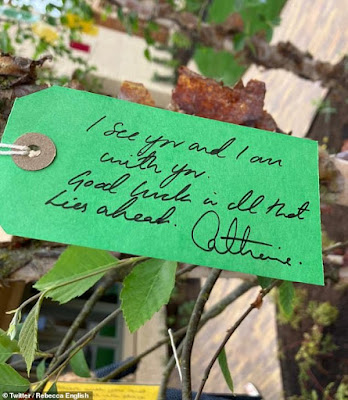 I see you and I am
with you.
Good luck in all that
lies ahead.
Catherine.
© Twitter / Rebecca English